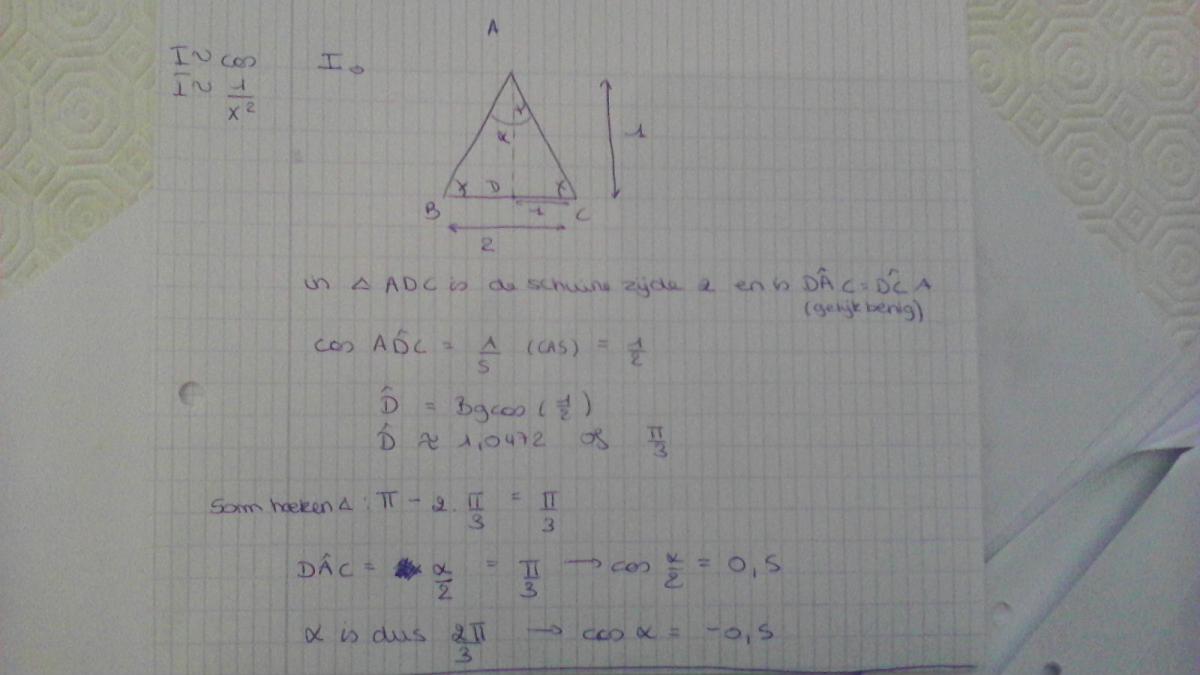 I ~ cos
I ~ 1/x²
I₀
A
α
x D x
1
B 1 C
2
in △ ADC is de schuine zijde 2 en is DÂC = DĈA
(gelijkbenig)
cos AD̂C = A/S (CAS) = 1/2
D̂ = Bgcos (1/2)
D̂ ≈ 1,0472 of π/3
Som hoeken △ : π - 2 . π/3 = π/3
DÂC = α/2 = π/3 → cos α/2 = 0,5
α is dus 2π/3 → cos α = -0,5